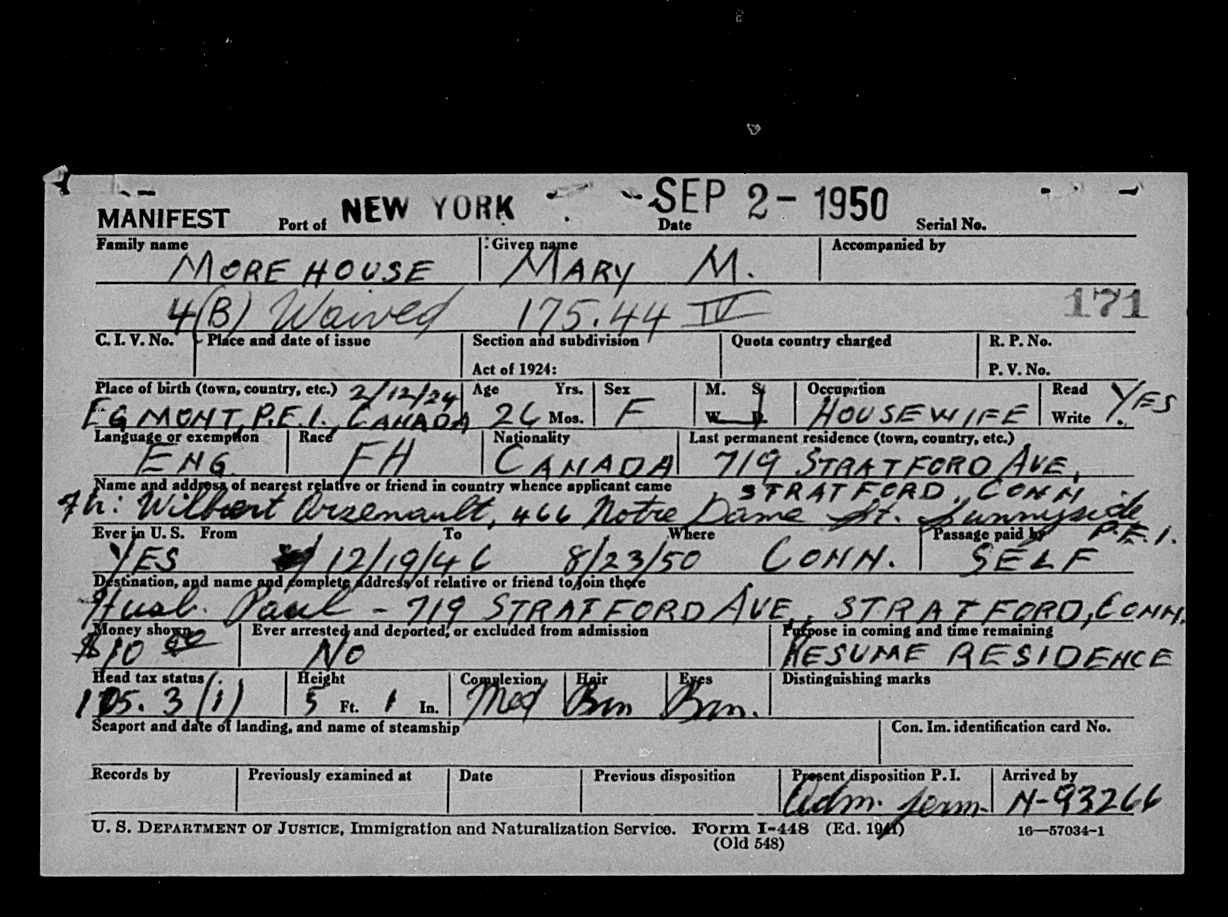 MANIFEST Port of NEW YORK SEP 2 - 1950 Date Serial No.
Family name Given name Accompanied by
MOREHOUSE MARY M.
4(B) Waived 175.44 IV 171
C. I. V. No. Place and date of issue Section and subdivision Quota country charged R. P. No.
Act of 1924: P. V. No.
Place of birth (town, country, etc.) 2/12/24 Age Yrs. Sex M. S. Occupation Read YES
EGMONT, P.E.I., CANADA 26 Mos. F W. D. HOUSEWIFE Write
Language or exemption Race Nationality Last permanent residence (town, country, etc.)
ENG FH CANADA 719 STRATFORD AVE,
Name and address of nearest relative or friend in country whence applicant came STRATFORD, CONN
Fh: Wilbert Arsenault, 466 Notre Dame St. Sunnyside P.E.I.
Ever in U. S. From To Where Passage paid by
YES 12/19/46 8/23/50 CONN. SELF
Destination, and name and complete address of relative or friend to join there
Husb. Paul - 719 STRATFORD AVE, STRATFORD, CONN.
Money shown Ever arrested and deported, or excluded from admission Purpose in coming and time remaining
$10 00 NO RESUME RESIDENCE
Head tax status Height Complexion Hair Eyes Distinguishing marks
175. 3 (i) 5 Ft. 1 In. Med Brn Brn.
Seaport and date of landing, and name of steamship Con. Im. identification card No.
Records by Previously examined at Date Previous disposition Present disposition P. I. Arrived by
Adm. perm. N-93266
U. S. DEPARTMENT OF JUSTICE, Immigration and Naturalization Service. Form I-448 (Ed. 1941) 16—57034-1
(Old 548)